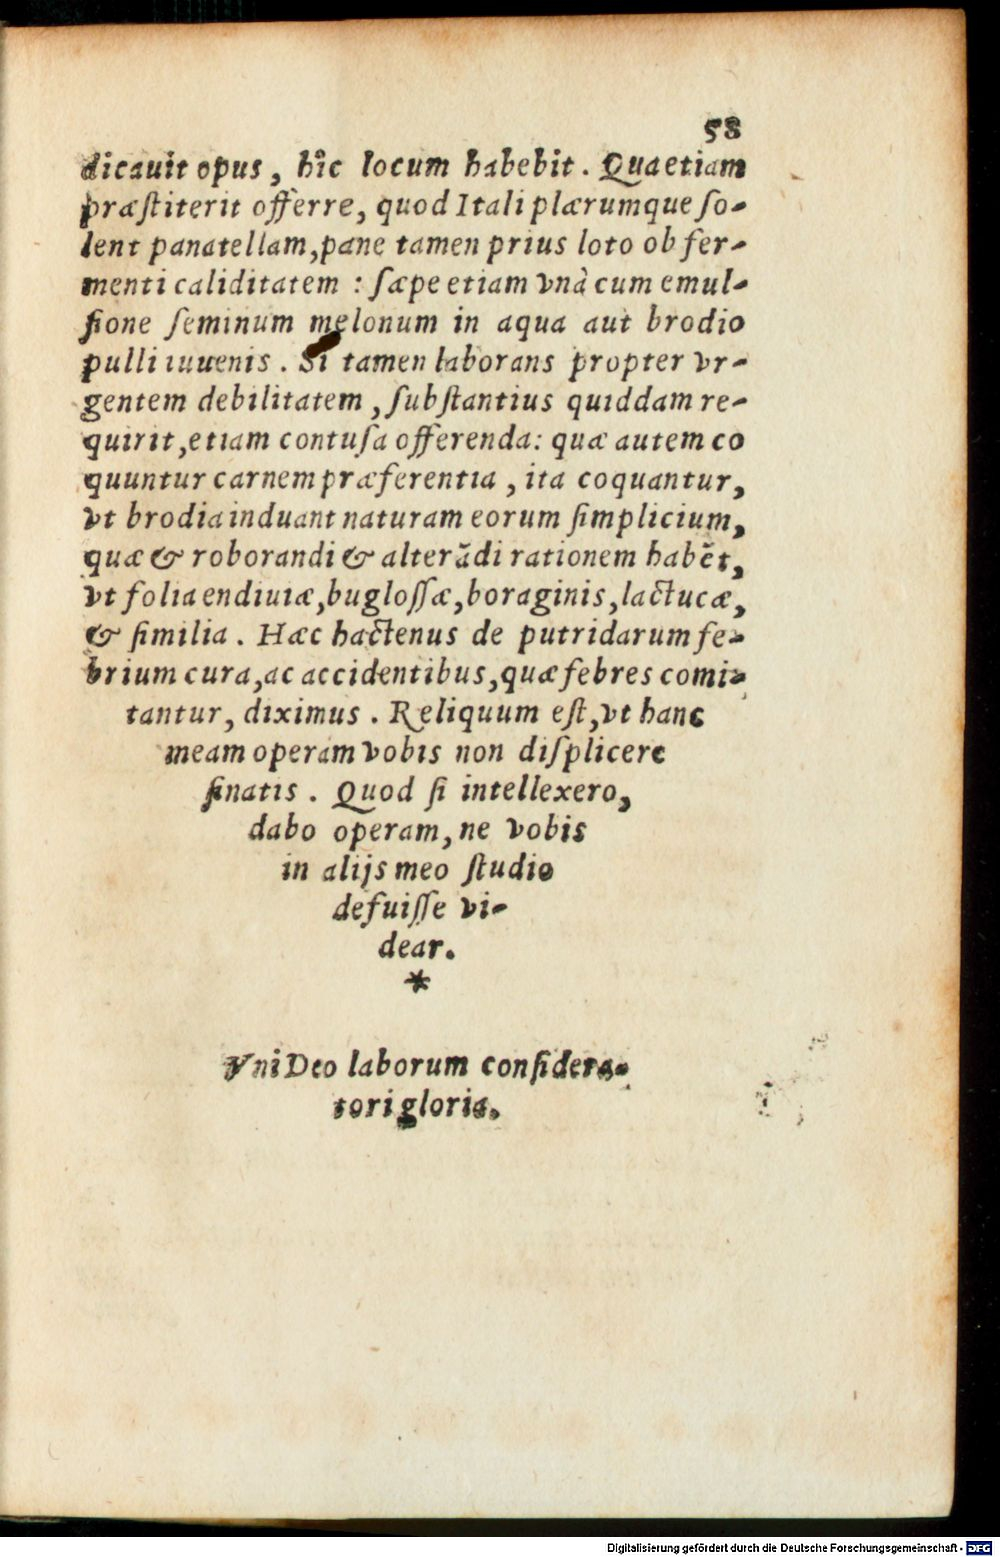 58
dicauit opus, hîc locum habebit. Qua etiam
præſtiterit offerre, quod Itali plærumque ſo-
lent panatellam, pane tamen prius loto ob fer-
menti caliditatem: ſæpe etiam vnà cum emul-
ſione ſeminum melonum in aqua aut brodio
pulli iuuenis. Si tamen laborans propter vr-
gentem debilitatem, ſubſtantius quiddam re-
quirit, etiam contuſa offerenda: quæ autem co
quuntur carnem præferentia, ita coquantur,
vt brodia induant naturam eorum ſimplicium,
quæ & roborandi & alterãdi rationem habẽt,
vt folia endiuiæ, bugloſſæ, boraginis, lactucæ,
& ſimilia. Hæc hactenus de putridarum fe-
brium cura, ac accidentibus, quæ febres comi-
tantur, diximus. Reliquum eſt, vt hanc
meam operam vobis non diſplicere
ſinatis. Quod ſi intellexero,
dabo operam, ne vobis
in alijs meo ſtudio
defuiſſe vi-
dear.
*
Vni Deo laborum conſidera-
tori gloria.
Digitalisierung gefördert durch die Deutsche Forschungsgemeinschaft - DFG